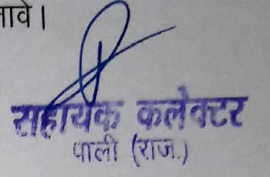 ावे।
सहायक कलेक्टर
पाली (राज.)